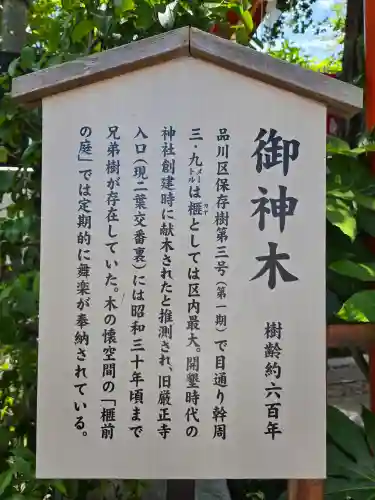 御神木
樹齢約六百年
品川区保存樹第三号(第一期)で目通り幹周
三・九メートルは榧カヤとしては区内最大。開墾時代の
神社創建時に献木されたと推測され、旧厳正寺
入口(現二葉交番裏)には昭和三十年頃まで
兄弟樹が存在していた。木の懐空間の「榧前
の庭」では定期的に舞楽が奉納されている。